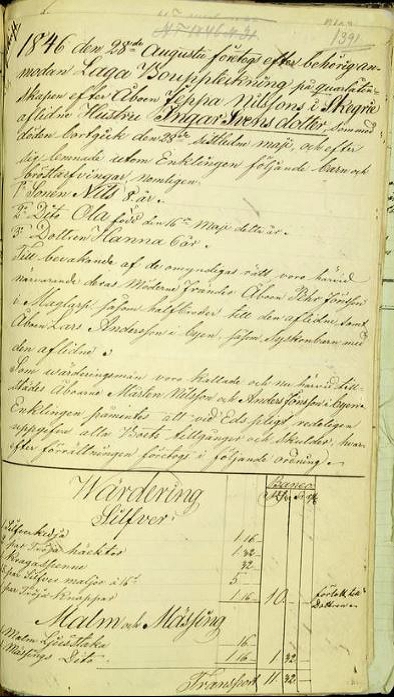 1391
1846 den 28de Augusti företogs efter behörig an-
modan Laga Bouppteckning på quarlåten-
skapen efter Åboen Jeppa Nilssons i Skegrie
aflidne Hustru Ingar Svensdotter, som med
döden bortgick den 28de sistledne maji, och efter
sig lemnade utom Enklingen följande barn och
bröstarfvingar, nemligen:
1o Sonen Nils 8 år.
2o Dito Ola född den 16de Maji detta år.
3o Dottren Hanna 6 år.
Till bevakande af de omyndigas rätt voro härvid
närvarande deras Möderne Fränder Åboen Pehr Jönsson
i Maglarp såsom halfbroder till den aflidne, samt
Åboen Lars Andersson i byen, såsom Syskonbarn med
den aflidne.
Som wärderingsmän voro kallade och nu härvid till-
städes Åboerne Mårten Nilsson och Anders Jönsson i byen.
Enklingen påmintes att vid Eds pligt redeligen
uppgifva alla Boets tillgångar och skulder, hvar-
efter förrättningen företogs i följande ordning.
Banco
Wärdering
Silfver
Silfverkedja 1 16
par Tröja häcktor 1 32
Kragaspenne 32
par Silfver maljor à 16s 5
par Tröja knappar 1 16 10
Malm och Mässing
Malm Ljusstake 16
Mässings Dito 1 16 1 32
Transport 11 32